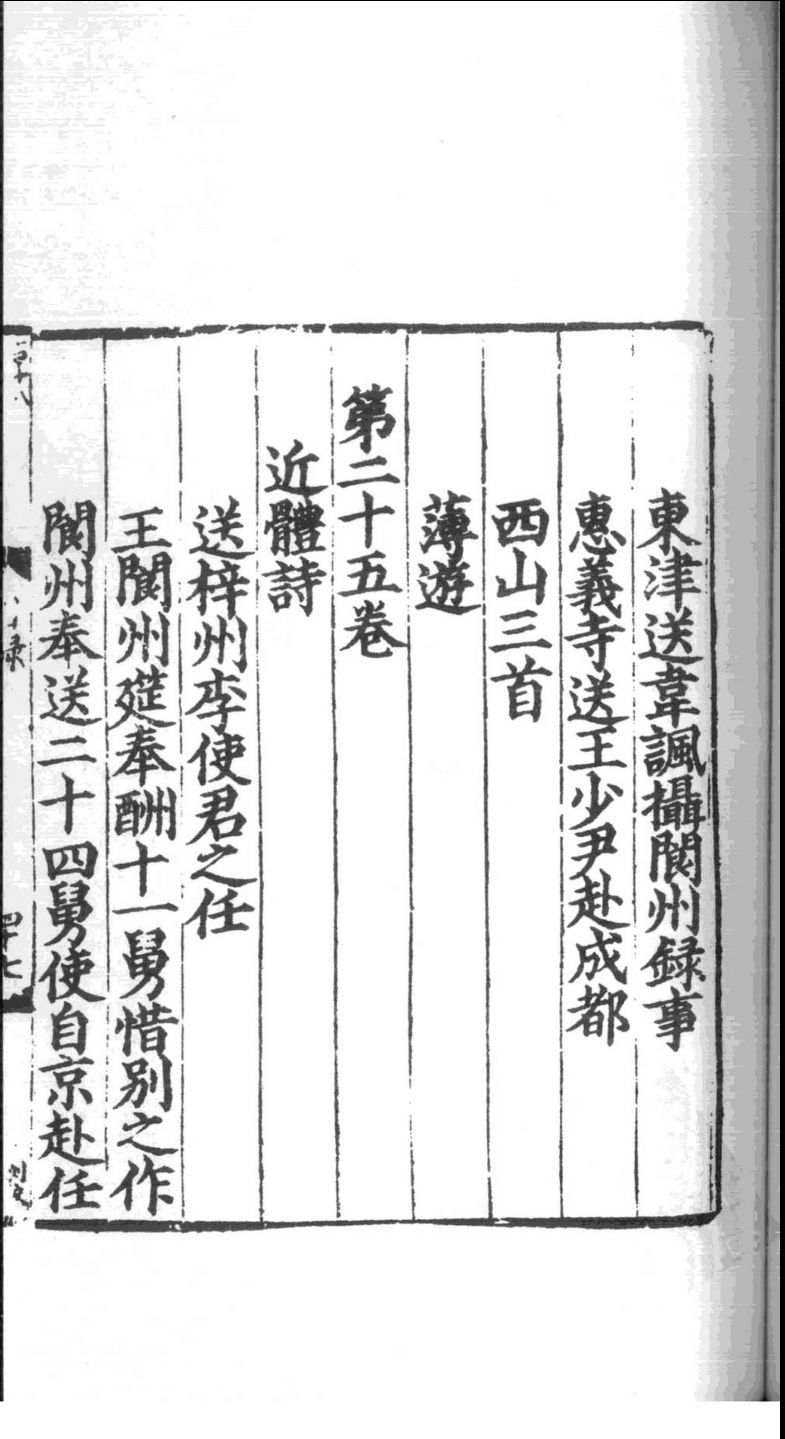 東津送韋諷攝閬州録事
惠義寺送王少尹赴成都
西山三首
薄遊
第二十五卷
近體詩
送梓州李使君之任
王閬州筵奉酬十一舅惜别之作
閬州奉送二十四舅使自京赴任
四十七